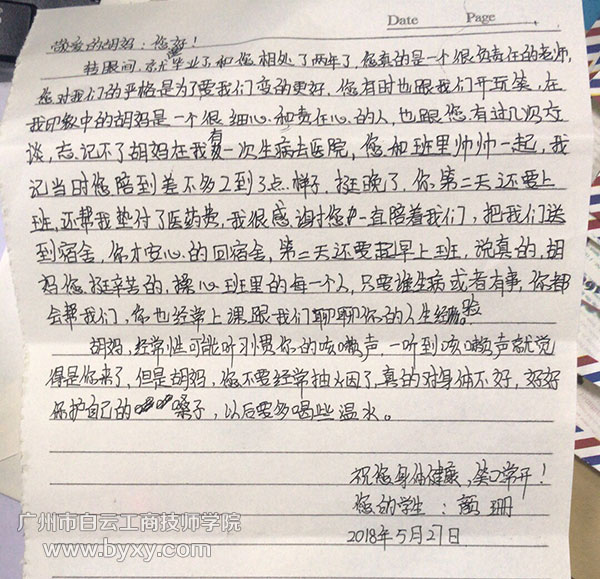 Date Page
敬爱的胡妈：您好！
转眼间，就毕业了和您相处了两年了，您真的是一个很负责任的老师，
您对我们的严格是为了要我们变的更好，您有时也跟我们开玩笑，在
我印象中的胡妈是一个很细心和责任心的人，也跟您有过几次交
谈，忘记不了胡妈在我有一次生病去医院，您和班里帅帅一起，我
记当时您陪到差不多12到1点样子，挺晚了，你第二天还要上
班，还帮我垫付了医药费，我很感谢您一直陪着我们，把我们送
到宿舍，你才安心的回宿舍，第二天还要起早上班，说真的，胡
妈您挺辛苦的，操心班里的每一个人，只要谁生病或者有事，你都
会帮我们，你也经常上课跟我们聊聊你的人生经验
胡妈，经常性可能听习惯你的咳嗽声，一听到咳嗽声就觉
得是你来了，但是胡妈，您不要经常抽烟了，真的对身体不好，好好
保护自己的嗓子，以后要多喝些温水。
祝您身体健康，笑口常开！
您的学生：颜珊
2018年5月27日
广州市白云工商技师学院
www.byxy.com